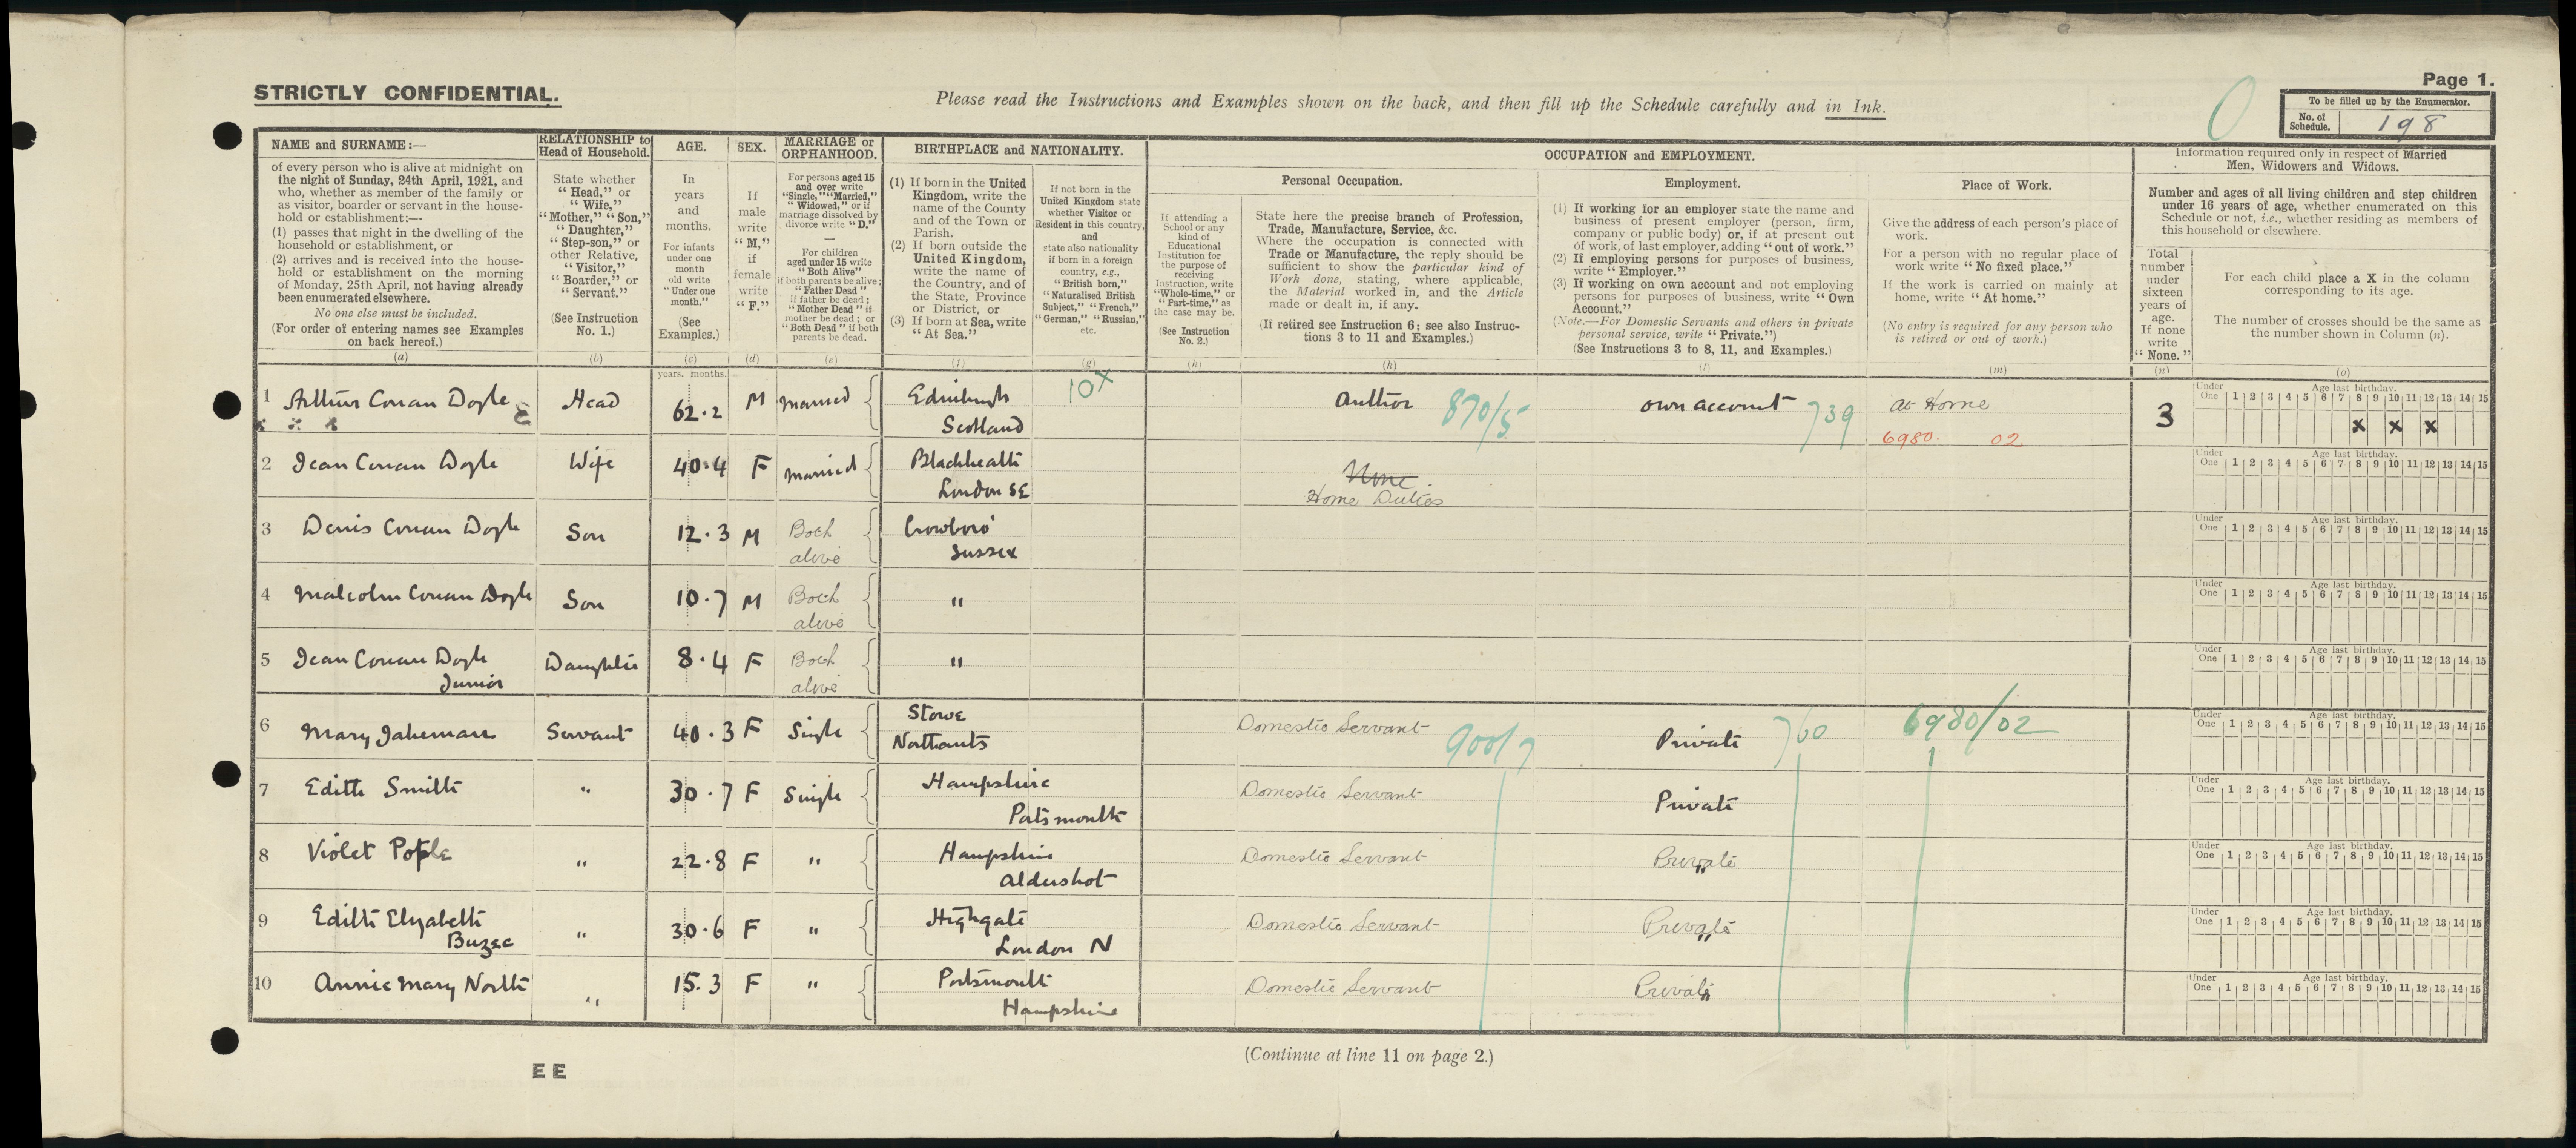 STRICTLY CONFIDENTIAL.
Please read the Instructions and Examples shown on the back, and then fill up the Schedule carefully and in Ink.
0
Page 1.
To be filled up by the Enumerator.
No. of Schedule. 198
NAME and SURNAME:—
of every person who is alive at midnight on
the night of Sunday, 24th April, 1921, and
who, whether as member of the family or
as visitor, boarder or servant in the house-
hold or establishment:—
(1) passes that night in the dwelling of the
household or establishment, or
(2) arrives and is received into the house-
hold or establishment on the morning
of Monday, 25th April, not having already
been enumerated elsewhere.
No one else must be included.
(For order of entering names see Examples
on back hereof.)
(a)
RELATIONSHIP to
Head of Household.
State whether
"Head," or
"Wife,"
"Mother," "Son,"
"Daughter,"
"Step-son," or
other Relative,
"Visitor,"
"Boarder," or
"Servant."
(See Instruction
No. 1.)
(b)
AGE.
In
years
and
months.
For infants
under one
month
old write
"Under one
month."
(See
Examples.)
(c)
SEX.
If
male
write
"M,"
if
female
write
"F."
(d)
MARRIAGE or
ORPHANHOOD.
For persons aged 15
and over write
"Single," "Married,"
"Widowed," or if
marriage dissolved by
divorce write "D."
—
For children
aged under 15 write
"Both Alive"
if both parents be alive;
"Father Dead"
if father be dead;
"Mother Dead" if
mother be dead; or
"Both Dead" if both
parents be dead.
(e)
BIRTHPLACE and NATIONALITY.
(1) If born in the United
Kingdom, write the
name of the County
and of the Town or
Parish.
(2) If born outside the
United Kingdom,
write the name of
the Country, and of
the State, Province
or District, or
(3) If born at Sea, write
"At Sea."
(f)
If not born in the
United Kingdom state
whether Visitor or
Resident in this country,
and
state also nationality
if born in a foreign
country, e.g.,
"British born,"
"Naturalised British
Subject," "French,"
"German," "Russian,"
etc.
(g)
OCCUPATION and EMPLOYMENT.
If attending a
School or any
kind of
Educational
Institution for
the purpose of
receiving
Instruction, write
"Whole-time," or
"Part-time," as
the case may be.
(See Instruction
No. 2.)
(h)
Personal Occupation.
State here the precise branch of Profession,
Trade, Manufacture, Service, &c.
Where the occupation is connected with
Trade or Manufacture, the reply should be
sufficient to show the particular kind of
Work done, stating, where applicable,
the Material worked in, and the Article
made or dealt in, if any.
(If retired see Instruction 6; see also Instruc-
tions 3 to 11 and Examples.)
(k)
Employment.
(1) If working for an employer state the name and
business of present employer (person, firm,
company or public body) or, if at present out
of work, of last employer, adding "out of work."
(2) If employing persons for purposes of business,
write "Employer."
(3) If working on own account and not employing
persons for purposes of business, write "Own
Account."
(Note.—For Domestic Servants and others in private
personal service, write "Private.")
(See Instructions 3 to 8, 11, and Examples.)
(l)
Place of Work.
Give the address of each person's place of
work.
For a person with no regular place of
work write "No fixed place."
If the work is carried on mainly at
home, write "At home."
(No entry is required for any person who
is retired or out of work.)
(m)
Information required only in respect of Married
Men, Widowers and Widows.
Number and ages of all living children and step children
under 16 years of age, whether enumerated on this
Schedule or not, i.e., whether residing as members of
this household or elsewhere.
Total
number
under
sixteen
years of
age.
If none
write
"None."
(n)
For each child place a X in the column
corresponding to its age.
The number of crosses should be the same as
the number shown in Column (n).
(o)
years. months.
1 Arthur Conan Doyle Head 62.2 M Married Edinburgh 10x Author 870/5 Own account 739 At Home 3
Scotland 6980. 02
Under One Age last birthday. 1 2 3 4 5 6 7 8 9 10 11 12 13 14 15
x x x
2 Jean Conan Doyle Wife 40.4 F Married Blackheath None
London SE Home Duties
Under One Age last birthday. 1 2 3 4 5 6 7 8 9 10 11 12 13 14 15
3 Denis Conan Doyle Son 12.3 M Both Crowboro'
alive Sussex
Under One Age last birthday. 1 2 3 4 5 6 7 8 9 10 11 12 13 14 15
4 Malcolm Conan Doyle Son 10.7 M Both "
alive
Under One Age last birthday. 1 2 3 4 5 6 7 8 9 10 11 12 13 14 15
5 Jean Conan Doyle Daughter 8.4 F Both "
Junior alive
Under One Age last birthday. 1 2 3 4 5 6 7 8 9 10 11 12 13 14 15
6 Mary Jakeman Servant 40.3 F Single Stowe Domestic Servant 900/7 Private 760 6980/02
Northants
Under One Age last birthday. 1 2 3 4 5 6 7 8 9 10 11 12 13 14 15
7 Edith Smith " 30.7 F Single Hampshire Domestic Servant Private
Portsmouth
Under One Age last birthday. 1 2 3 4 5 6 7 8 9 10 11 12 13 14 15
8 Violet Pople " 22.8 F " Hampshire Domestic Servant Private "
Aldershot
Under One Age last birthday. 1 2 3 4 5 6 7 8 9 10 11 12 13 14 15
9 Edith Elizabeth " 30.6 F " Highgate Domestic Servant Private "
London N
Under One Age last birthday. 1 2 3 4 5 6 7 8 9 10 11 12 13 14 15
10 Annie Mary North " 15.3 F " Portsmouth Domestic Servant Private "
Hampshire
Under One Age last birthday. 1 2 3 4 5 6 7 8 9 10 11 12 13 14 15
(Continue at line 11 on page 2.)
E E